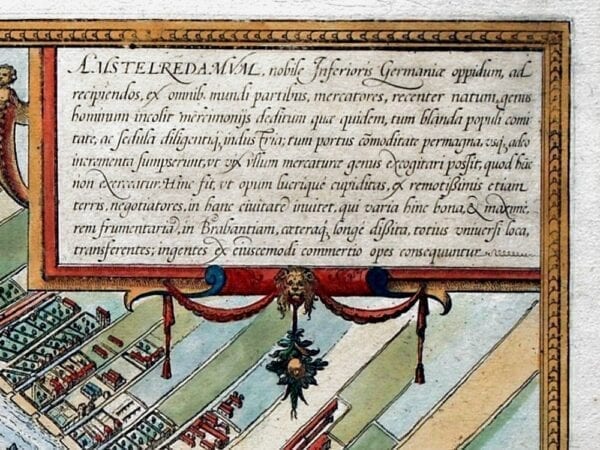 AMSTELREDAMVM, nobile Inferioris Germaniæ oppidum, ad
recipiendos, ex omnib. mundi partibus, mercatores, recenter natum, genus
hominum incolit mercimonijs deditum quæ quidem, tum blanda populi comi
tate, ac sedula diligentiq; industria; tum portus cõmoditate permagna, vsq; adeo
incrementa sumpserunt, vt vix vllum mercaturæ genus excogitari possit, quod hîc
non exerceatur. Hinc fit, vt opum lucriquè cupiditas, ex remotissimis etiam
terris, negotiatores, in hanc ciuitatẽ inuitet, qui varia hinc bona, & maximè,
rem frumentariã, in Brabantiam, cæteraq; longè dissita, totius vniuersi loca,
transferentes; ingentes ex eiuscemodi commertio opes consequuntur.